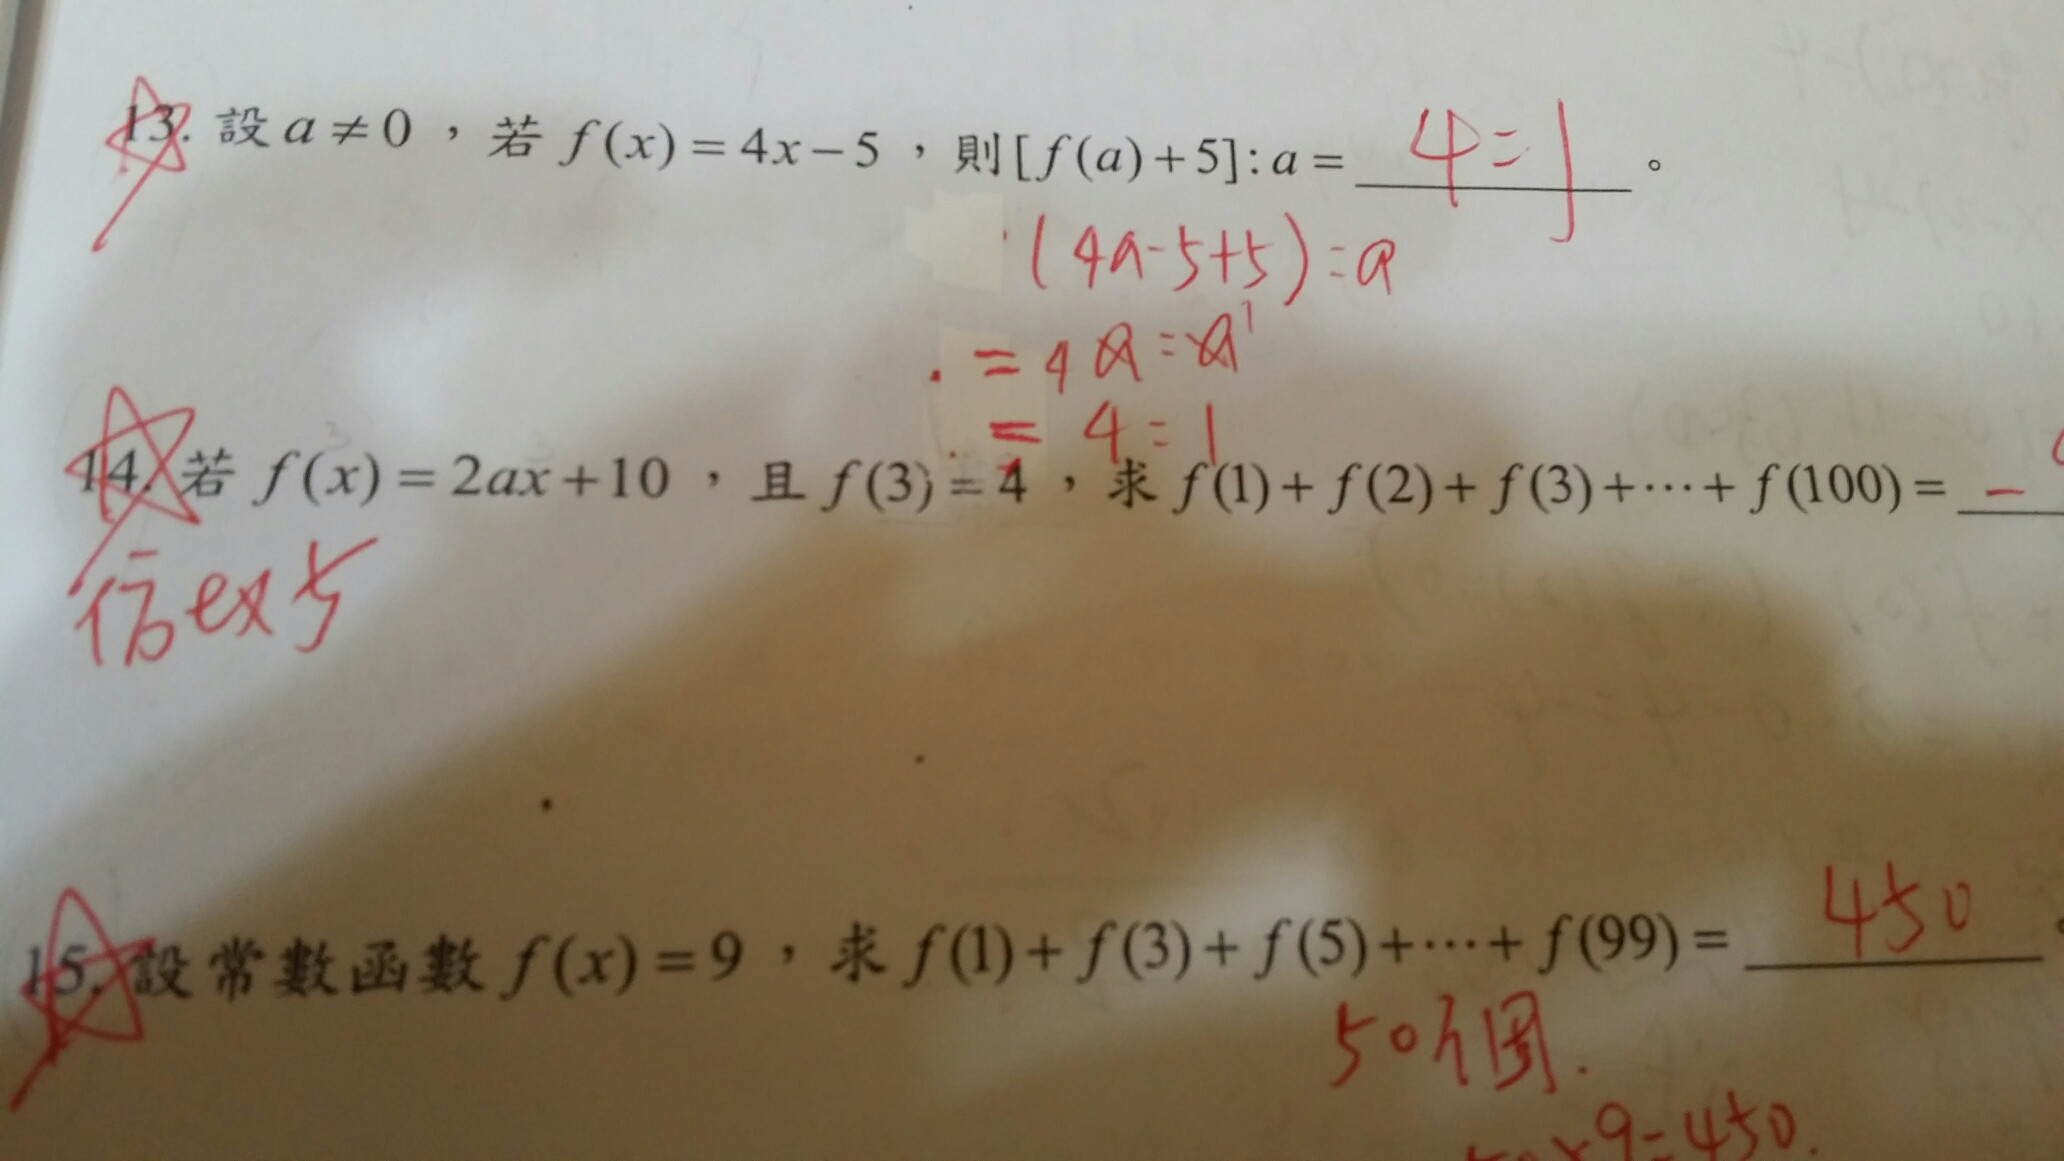 13. 設 a ≠ 0 ，若 f(x) = 4x − 5 ，則 [f(a) + 5] : a = 4 : 1 。
(4a-5+5) : a
= 4a : a 1
= 4 : 1
14. 若 f(x) = 2ax + 10 ，且 f(3) = 4 ，求 f(1) + f(2) + f(3) + ⋯ + f(100) = −
ex 5
15. 設常數函數 f(x) = 9 ，求 f(1) + f(3) + f(5) + ⋯ + f(99) = 450
50個.
×9=450.